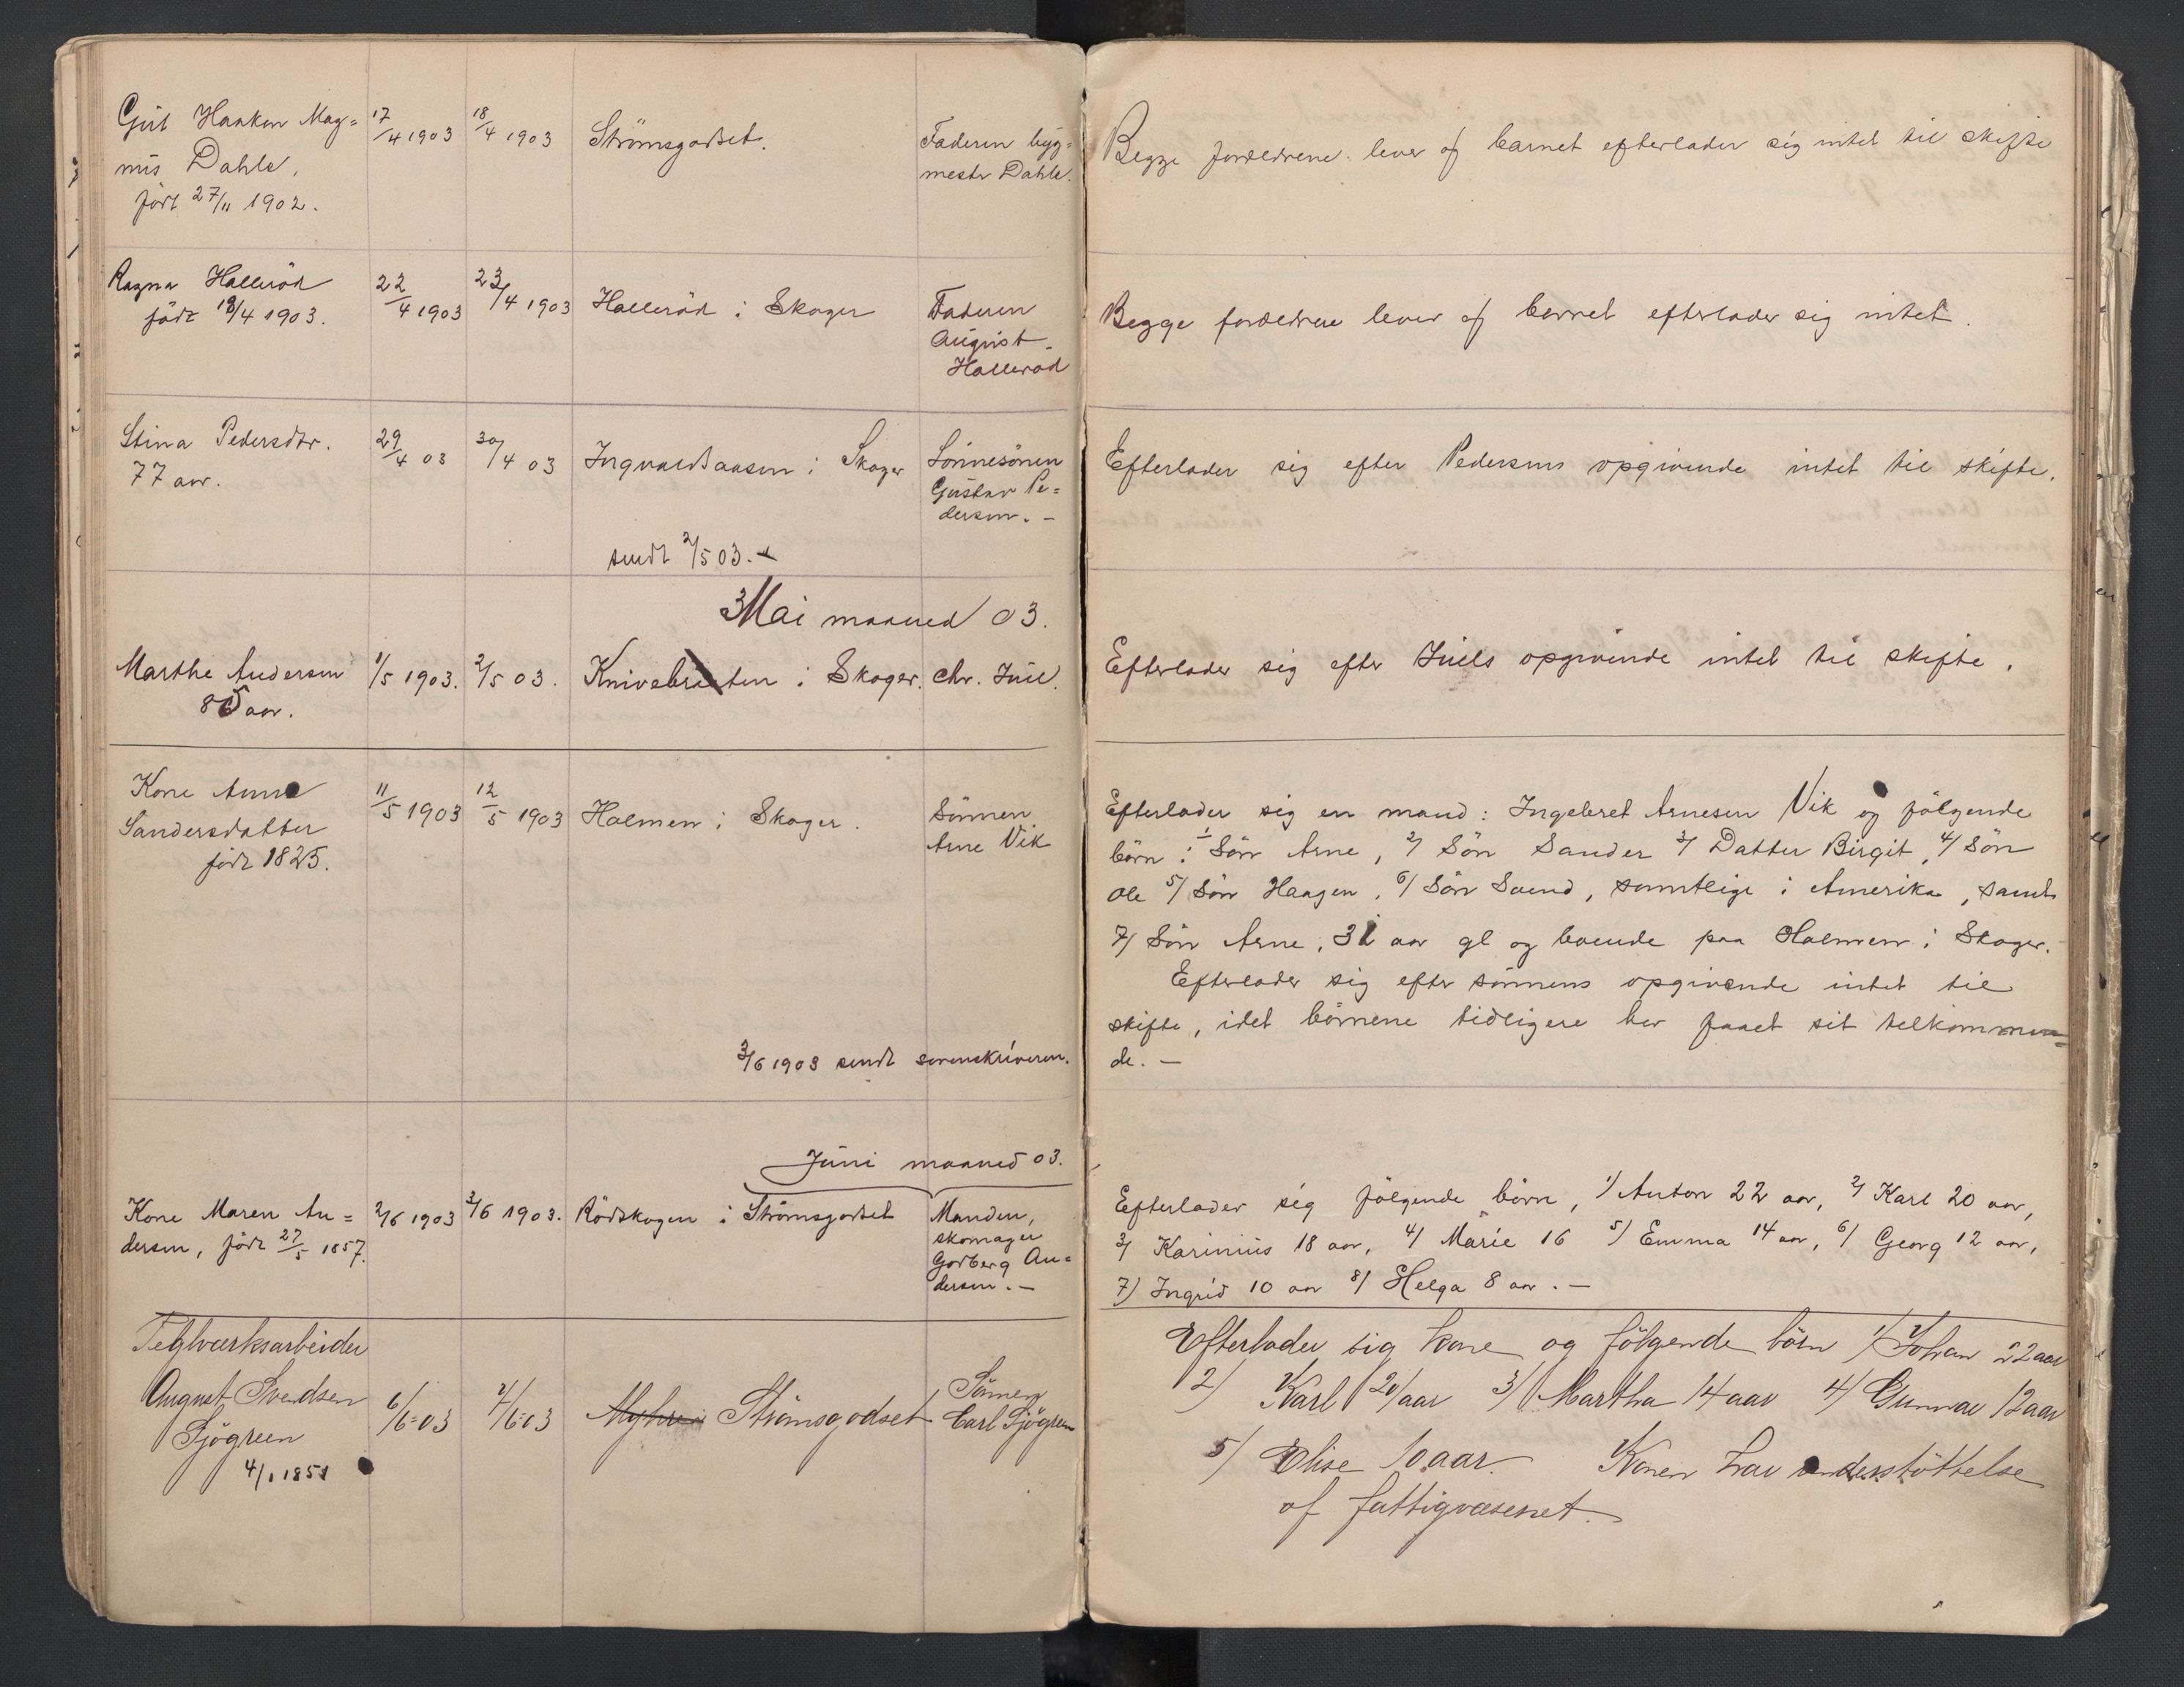 Gut Haakon Mag=
nus Dahle,
født 27/11 1902.
17/4 1903
18/4 1903
Strömsgodset.
Faderen byg=
mester Dahle.
Begge forældrene lever og barnet efterlader sig intet til skifte
Ragna Halleröd
födt 19/4 1903.
22/4 1903
23/4 1903
Halleröd i Skoger
Faderen
August
Halleröd
Begge forældrene lever og barnet efterlader sig intet.
Stina Pedersdtr.
77 aar.
29/4 03
30/4 03
Ingvaldsaasen i Skoger
Sönnesönen
Gustav Pe=
dersen. —
sendt 2/5 03. —
Efterlader sig efter Pedersens opgivende intet til skifte.
3 Mai maaned 03.
Marthe Andersen
85 aar.
1/5 1903.
2/5 03.
Knivebråten i Skoger.
Chr. Juil.
Efterlader sig efter Juils opgivende intet til skifte.
Kone Anne
Sandersdatter
født 1825.
11/5 1903
12/5 1903
Holmen i Skoger.
Sönnen
Arne Vik
3/6 1903 sendt sorenskriveren.
Efterlader sig en mand: Ingebret Arnesen Vik og fölgende
börn: 1/ Sön Arne, 2/ Sön Sander 3/ Datter Birgit, 4/ Sön
Ole 5/ Sön Haagen, 6/ Sön Svend, samtlige i Amerika, samt
7/ Sön Arne, 31 aar gl og boende paa Holmen i Skoger.
Efterlader sig efter sönnens opgivende intet til
skifte, idet börnene tidligere har faaet sit tilkommen=
de. —
Juni maaned 03.
Kone Maren An=
dersen, födt 27/5 1857.
2/6 1903
3/6 1903.
Rödskogen i Strömsgodset
Manden,
skomager
Godberg An=
dersen. —
Efterlader sig fölgende börn, 1/ Anton 22 aar, 2/ Karl 20 aar,
3/ Karinius 18 aar, 4/ Marie 16 5/ Emma 14 aar, 6/ Georg 12 aar,
7/ Ingrid 10 aar 8/ Helga 8 aar. —
Teglværksarbeider
August Svendsen
Sjögreen
4/1 1851
6/6-03
7/6-03
Myhre i Strömsgodset
Sönnen
Carl Sjögreen
Efterlader sig kone og fölgende börn 1/ Johan 22 aar
2/ Karl 20 aar 3/ Martha 14 aar 4/ Gunnar 12 aar
5/ Elise 10 aar. Konen har understöttelse
af fattigvæsenet.